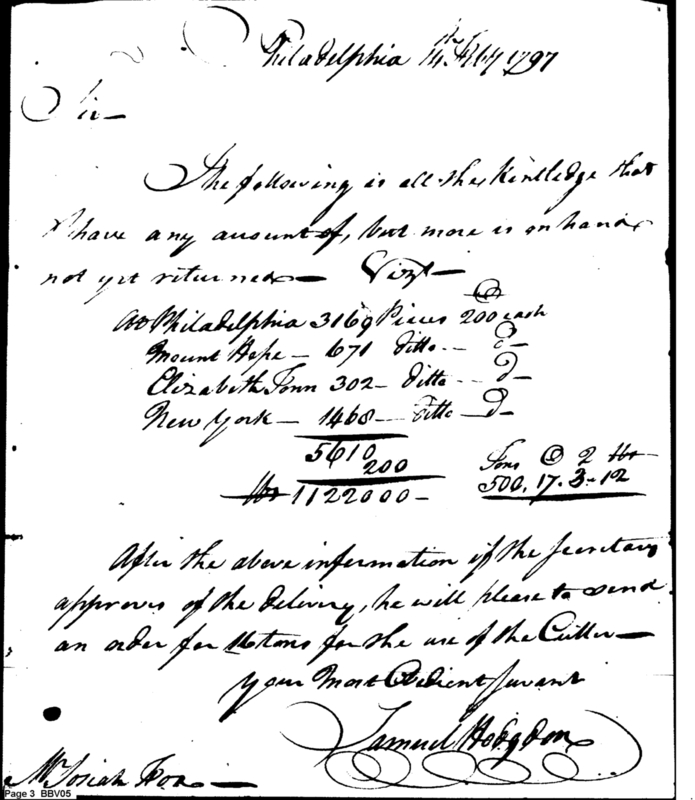 Philadelphia 14th Feby 1797
Sir—
The following is all the Kintledge that
I have any account of, but more is on hand
not yet returned— Vizt—
@
At Philadelphia 3169 Pieces 200 each
Mount Hope — 671 ditto -- d—
Elizabeth Town 302 — ditto -- d—
New York — 1468 — ditto — d—
5610
200
lbs 1122000—
Tons @ 2 lbs
500. 17. 3-12
After the above information if the Secretary
approves of the delivery, he will please to send
an order for 16 tons for the use of the Cutter—
Your Most Obedient Servant
Samuel Hodgdon
Mr Josiah Fox —
Page 3 BBV05